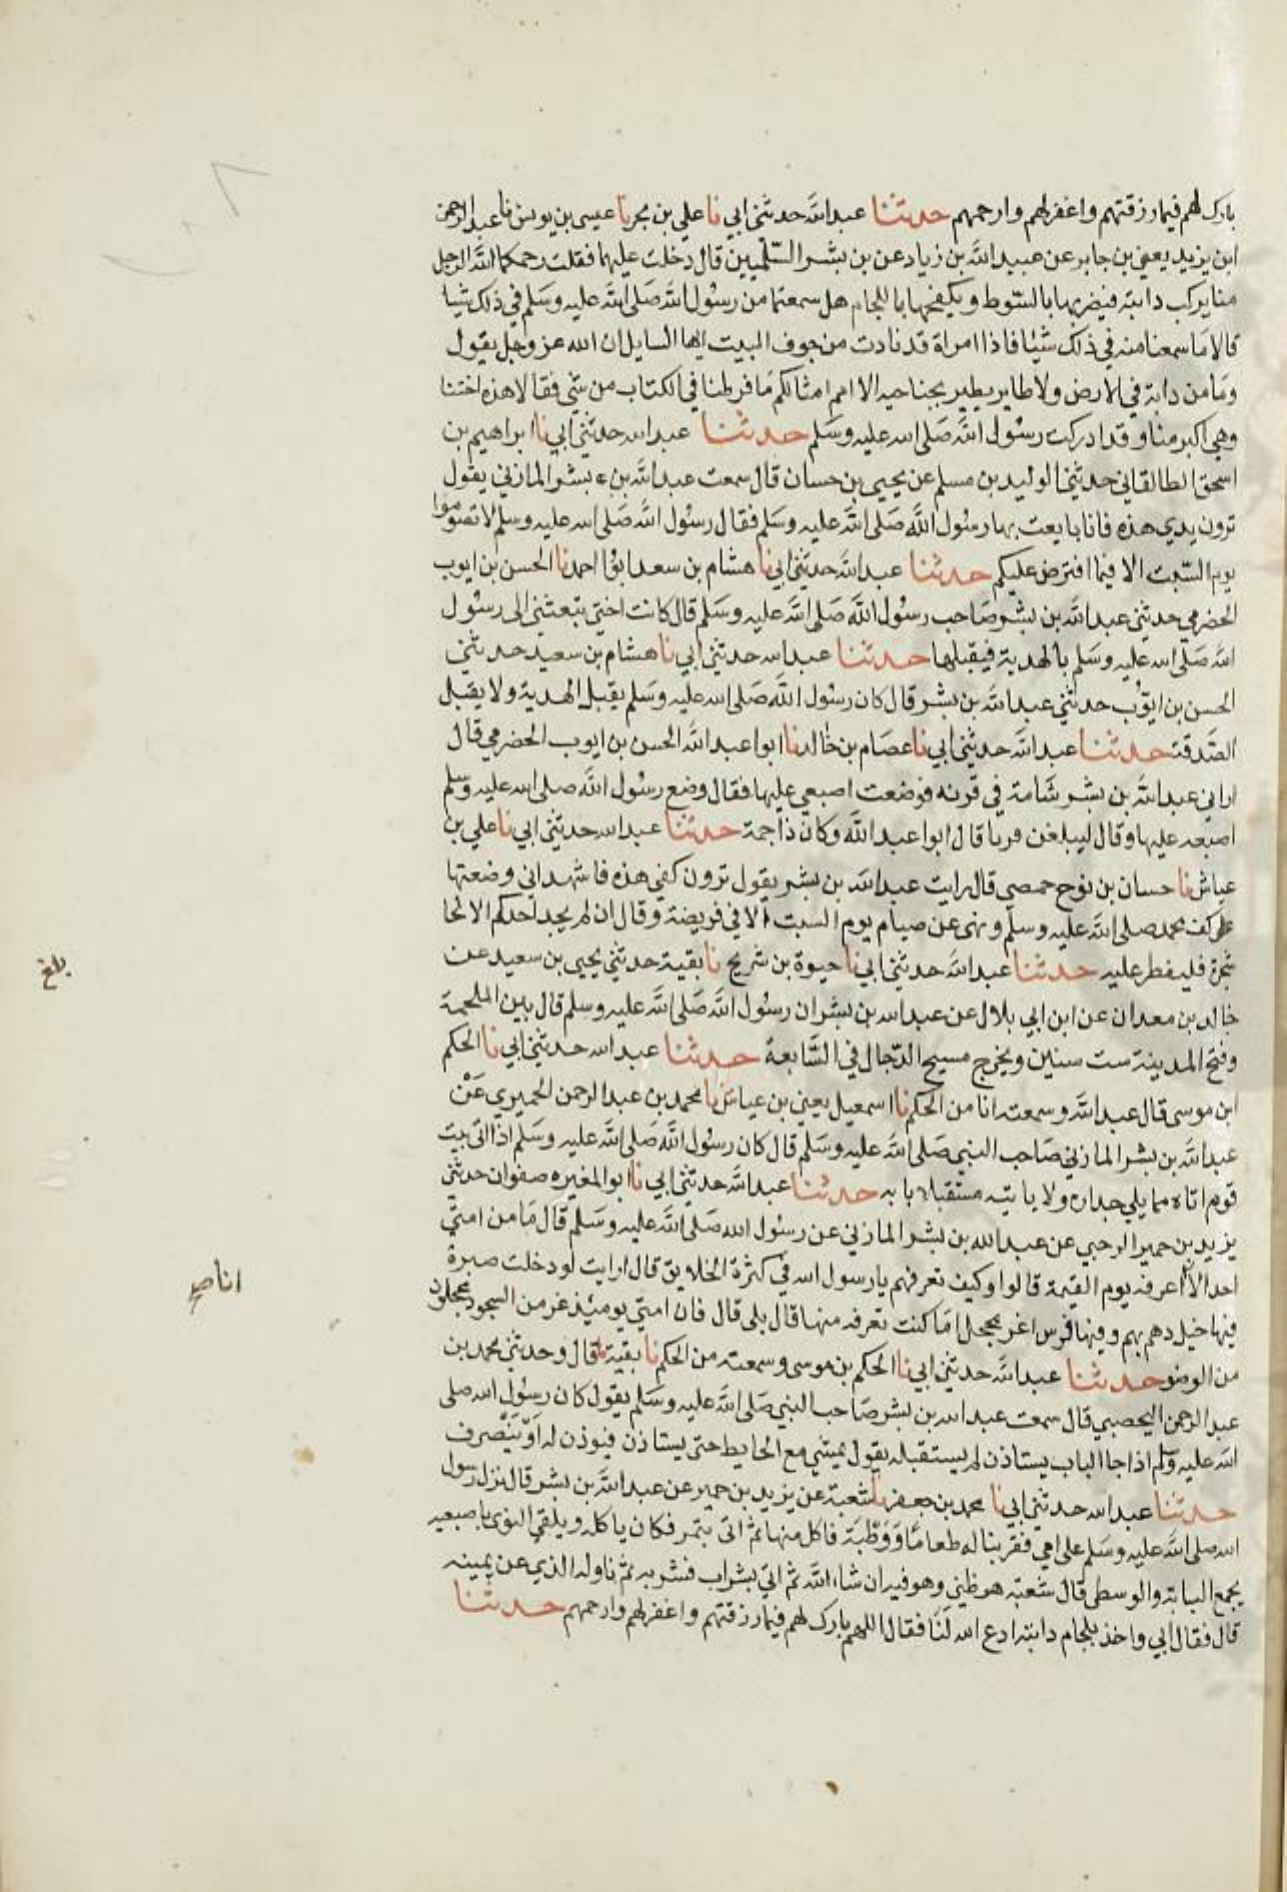 بارك لهم فيما رزقتهم واغفر لهم وارحمهم حدثنا عبد الله حدثني ابي نا علي بن بحر نا عيسى بن يونس نا عبد الرحمن
ابن يزيد يعني بن جابر عن عبيد الله بن زياد عن بن بشر السلميين قال دخلت عليهما فقلت رحمكما الله الرجل
منا يركب دابته فيضربها بالسوط ويكفحها باللجام هل سمعتما من رسول الله صلى الله عليه وسلم في ذلك شيا
قالا ما سمعنا منه في ذلك شيئا فاذا امراة قد نادت من جوف البيت ايها السايل ان الله عز وجل يقول
وما من دابة في الارض ولا طاير يطير بجناحيه الا امم امثالكم ما فرطنا في الكتاب من شي فقالا هذه اختنا
وهي اكبر منا وقد ادركت رسول الله صلى الله عليه وسلم حدثنا عبد الله حدثني ابي نا ابراهيم بن
اسحق الطالقاني حدثني الوليد بن مسلم عن يحيى بن حسان قال سمعت عبد الله بن بشر المازني يقول
ترون يدي هذه فانا بايعت بها رسول الله صلى الله عليه وسلم فقال رسول الله صلى الله عليه وسلم لا تصوموا
يوم السبت الا فيما افترض عليكم حدثنا عبد الله حدثني ابي نا هشام بن سعد ابوا احمد نا الحسن بن ايوب
الحضرمي حدثني عبد الله بن بشر صاحب رسول الله صلى الله عليه وسلم قال كانت اختي تبعثني الى رسول
الله صلى الله عليه وسلم بالهدية فيقبلها حدثنا عبد الله حدثني ابي نا هشام بن سعيد حدثني
الحسن بن ايوب حدثني عبد الله بن بشر قال كان رسول الله صلى الله عليه وسلم يقبل الهدية ولا يقبل
الصدقة حدثنا عبد الله حدثني ابي نا عصام بن خالد نا ابوا عبد الله الحسن بن ايوب الحضرمي قال
اراني عبد الله بن بشر شامة في قرنه فوضعت اصبعي عليها فقال وضع رسول الله صلى الله عليه وسلم
اصبعه عليها وقال ليبلغن قرنا قال ابوا عبد الله وكان ذا جمة حدثنا عبد الله حدثني ابي نا علي بن
عياش نا حسان بن نوح حمصي قال رايت عبد الله بن بشر يقول ترون كفي هذه فاشهد اني وضعتها
على كف محمد صلى الله عليه وسلم ونهى عن صيام يوم السبت الا في فريضة وقال ان لم يجد احدكم الا لحا
شجرة فليفطر عليه حدثنا عبد الله حدثني ابي نا حيوة بن شريح نا بقية حدثني يحيى بن سعيد عن
خالد بن معدان عن ابن ابي بلال عن عبد الله بن بشر ان رسول الله صلى الله عليه وسلم قال بين الملحمة
وفتح المدينة ست سنين ويخرج مسيح الدجال في السابعة حدثنا عبد الله حدثني ابي نا الحكم
ابن موسى قال عبد الله وسمعته انا من الحكم نا اسمعيل يعني بن عياش نا محمد بن عبد الرحمن الحميري عن
عبد الله بن بشر المازني صاحب النبي صلى الله عليه وسلم قال كان رسول الله صلى الله عليه وسلم اذا اتى بيت
قوم اتاه مما يلي جداره ولا ياتيه مستقبلا بابه حدثنا عبد الله حدثني ابي نا ابوا المغيره صفوان حدثني
يزيد بن حمير الرحبي عن عبد الله بن بشر المازني عن رسول الله صلى الله عليه وسلم قال ما من امتي
احد الا انا اعرفه يوم القيمة قالوا وكيف تعرفهم يا رسول الله في كثرة الخلايق قال ارايت لو دخلت صبرة
فيها خيل دهم بهم وفيها فرس اغر محجل اما كنت تعرفه منها قال بلى قال فان امتي يومئذ غر من السجود محجلون
من الوضو حدثنا عبد الله حدثني ابي نا الحكم بن موسى وسمعته من الحكم نا بقية قال وحدثني محمد بن
عبد الرحمن اليحصبي قال سمعت عبد الله بن بشر صاحب النبي صلى الله عليه وسلم يقول كان رسول الله صلى
الله عليه وسلم اذا جا الباب يستاذن لم يستقبله يقول يمشي مع الحايط حتى يستاذن فيوذن له او ينصرف
حدثنا عبد الله حدثني ابي نا محمد بن جعفر نا شعبة عن يزيد بن حمير عن عبد الله بن بشر قال نزل رسول
الله صلى الله عليه وسلم على امي فقربنا له طعاما ووطبة فاكل منها ثم اتي بتمر فكان ياكله ويلقي النوى باصبعيه
يجمع السبابة والوسطى قال شعبة هو ظني وهو فيه ان شا الله ثم اتي بشراب فشربه ثم ناوله الذي عن يمينه
قال فقال ابي واخذ بلجام دابته ادع الله لنا فقال اللهم بارك لهم فيما رزقتهم واغفر لهم وارحمهم حدثنا
بلغ
انا صح